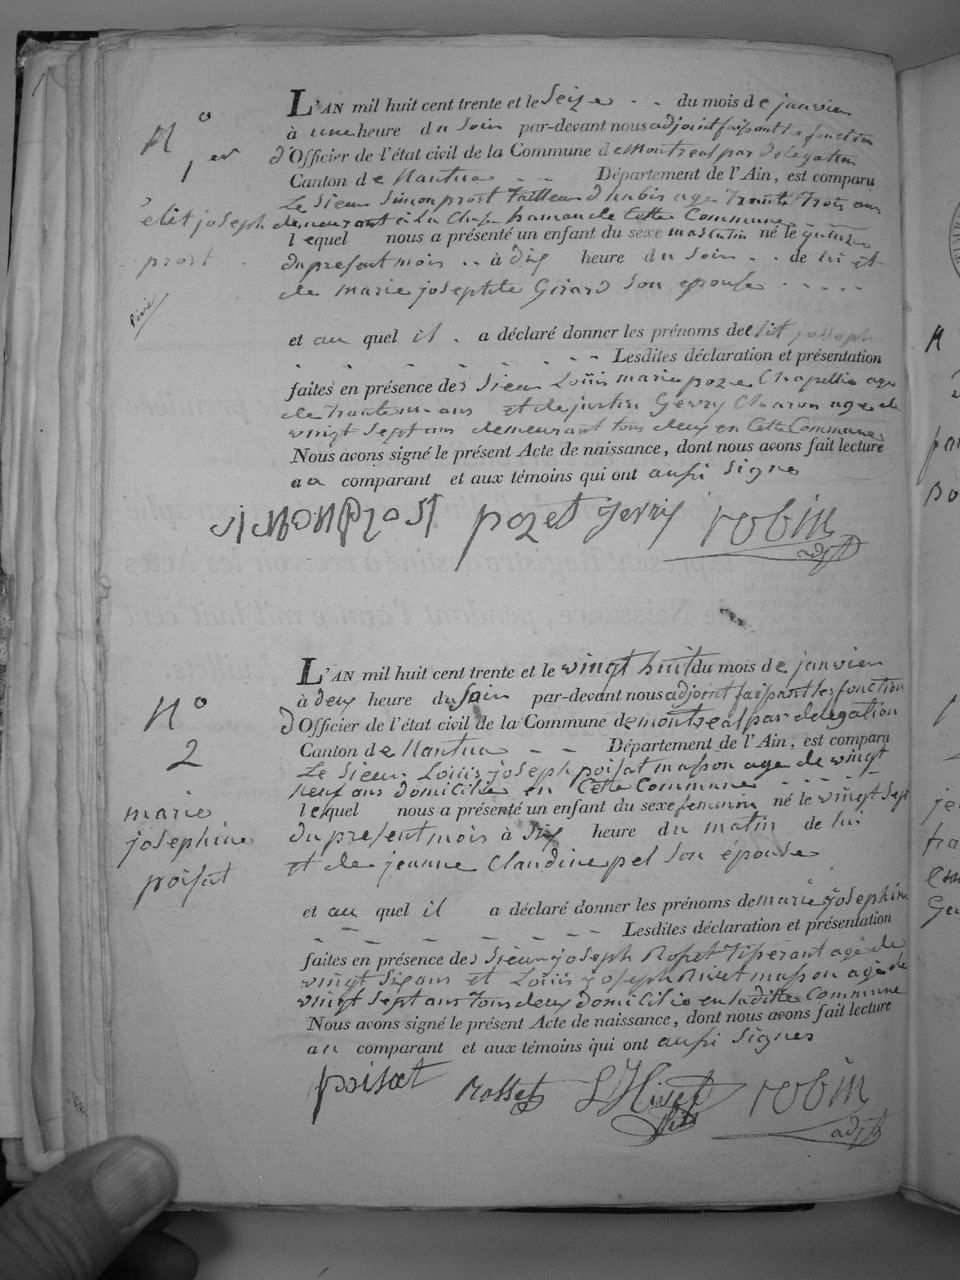 N° 1er
élit joseph
prost
L'AN mil huit cent trente et le Seize du mois de janvier
à une heure du Soir par-devant nous adjoint faisant les fonction
d'Officier de l'état civil de la Commune de Montreal par delegation
Canton de Nantua Département de l'Ain, est comparu
Le Sieur Simon prost Tailleur d'habis age Trante Trois ans
demeurant à la Cette Commune
lequel nous a présenté un enfant du sexe masculin né le quinze
du present mois à dix heure du Soir de lui et
de marie josephte Girard Son epouse
et au quel il a déclaré donner les prénoms de elit joseph
Lesdites déclaration et présentation
faites en présence des Sieur Loüis marie pozet Chapellier age
de ans et de justin Gevry Charon age de
vingt Sept ans demeurant tous deux en Cette Commune
Nous avons signé le présent Acte de naissance, dont nous avons fait lecture
au comparant et aux témoins qui ont aussi Signes
SIMON PROST pozet Gevry robin
adjt
N° 2
marie
josephine
poisat
L'AN mil huit cent trente et le vingt huit du mois de janvier
à deux heure du Soir par-devant nous adjoint faisant les fonction
d'Officier de l'état civil de la Commune de montreal par delegation
Canton de Nantua Département de l'Ain, est comparu
Le Sieur Loüis joseph poisat masson age de vingt
neuf ans domicilié en Cette Commune
lequel nous a présenté un enfant du sexe feminin né le vingt Sept
du present mois à Dix heure du matin de lui
et de jeanne Claudine pel Son épouse
et au quel il a déclaré donner les prénoms de marie josephine
Lesdites déclaration et présentation
faites en présence des Sieur joseph Roset Tiserant agé de
vingt Six ans et Loüis joseph Rivet masson agé de
vingt Sept ans Tous deux domicilié en la ditte Commune
Nous avons signé le présent Acte de naissance, dont nous avons fait lecture
au comparant et aux témoins qui ont aussi Signes
poisat Rosset robin
adjt